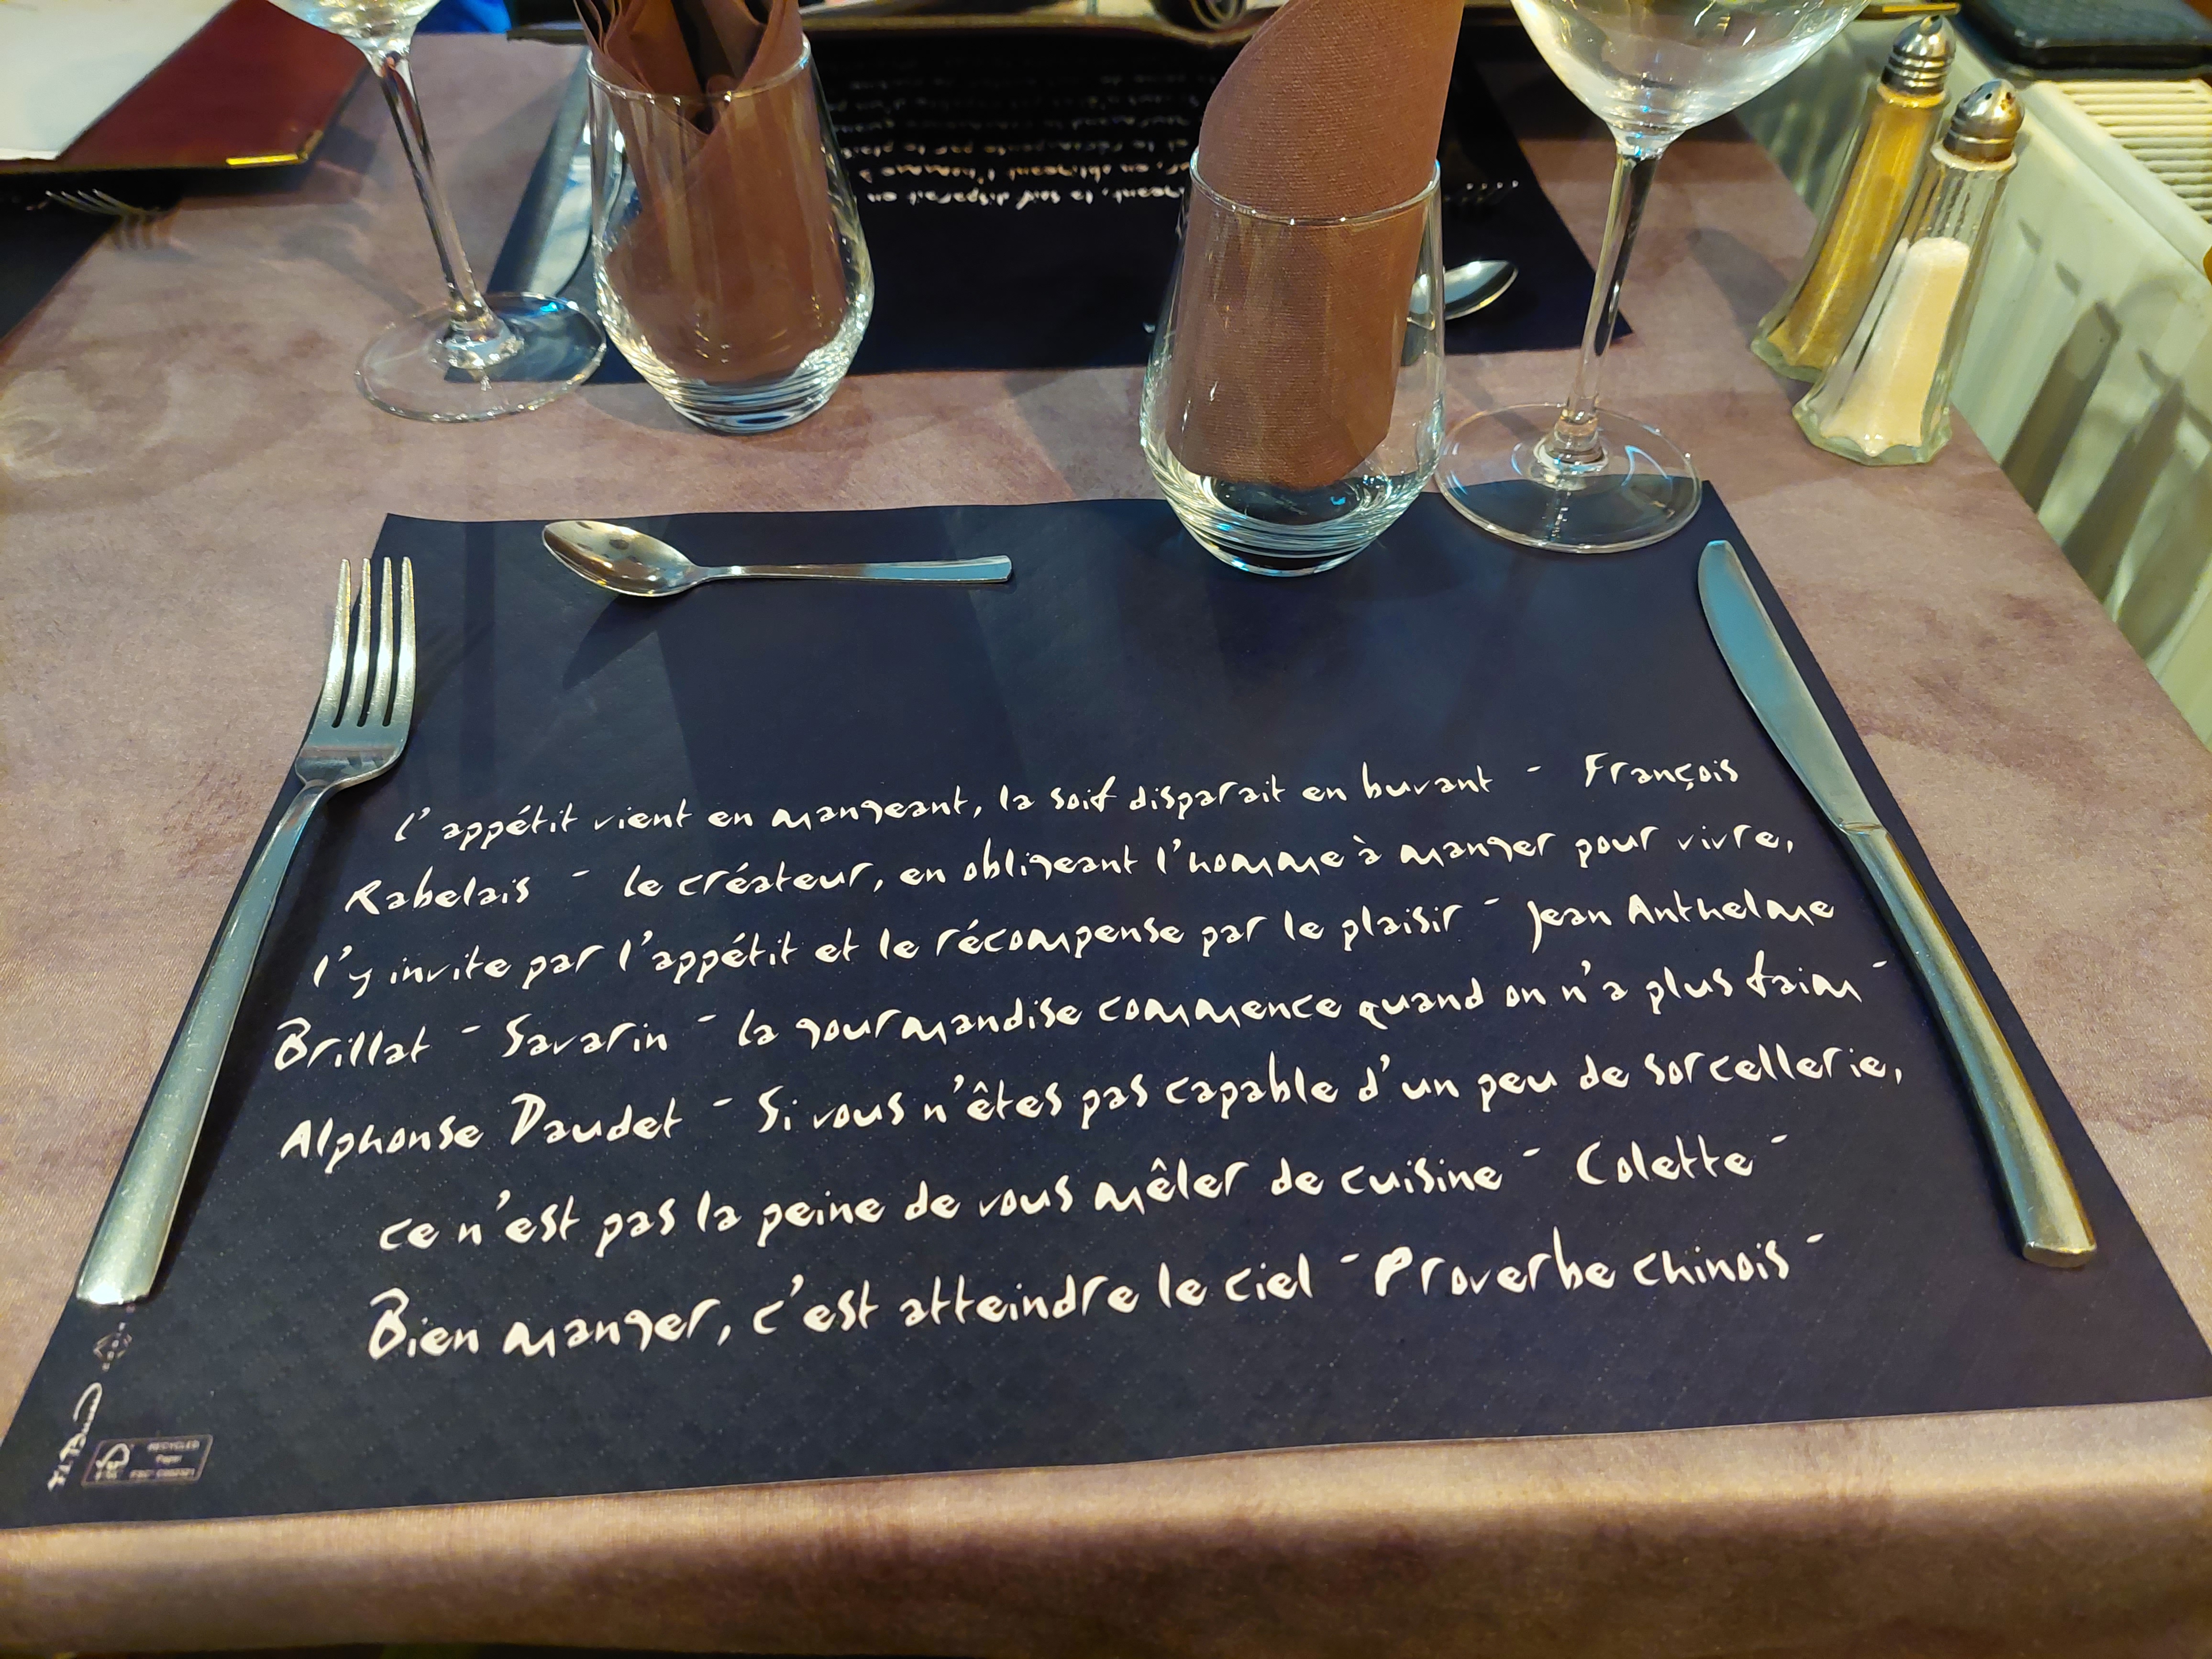 l'appétit vient en mangeant, la soif disparait en buvant - François
Rabelais - le créateur, en obligeant l'homme à manger pour vivre,
l'y invite par l'appétit et le récompense par le plaisir - Jean Anthelme
Brillat - Savarin - la gourmandise commence quand on n'a plus faim -
Alphonse Daudet - Si vous n'êtes pas capable d'un peu de sorcellerie,
ce n'est pas la peine de vous mêler de cuisine - Colette -
Bien manger, c'est atteindre le ciel - Proverbe chinois -
RECYCLED
Paper